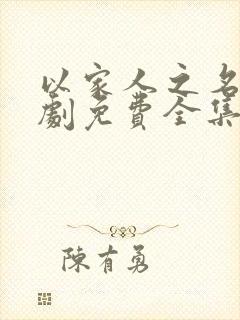 以家人之名
劇免費全集
陳有勇